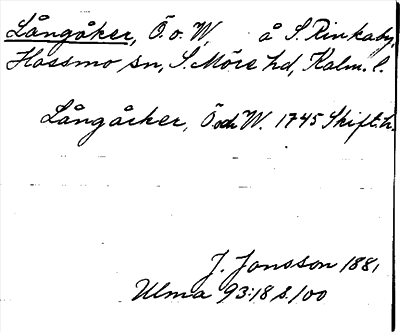 Långåker, Ö. o. W. å S. Rinkaby,
Hossmo sn, S. Möre hd, Kalm. l.
Långåcker, Ö och W. 1745 Skift. h.
J. Jonsson 1881
Ulma 93:18 s. 100